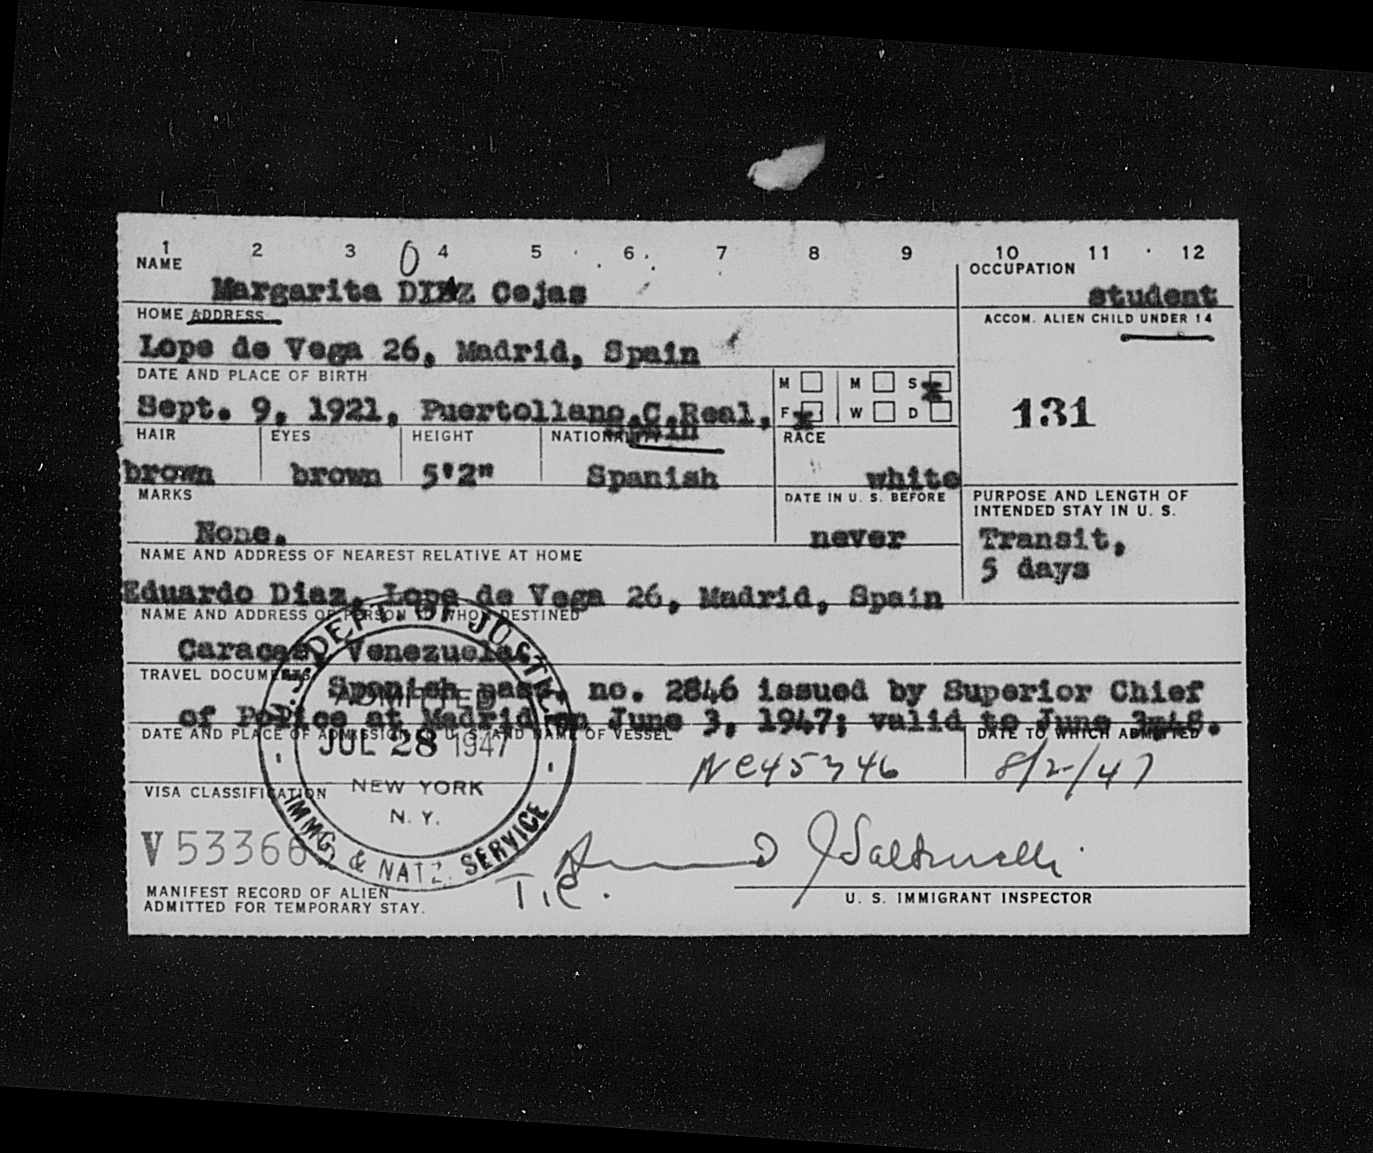 1 2 3 0 4 5 6 7 8 9 10 11 12
NAME
OCCUPATION
Margarita DIAZ Cejas
student
HOME ADDRESS
ACCOM. ALIEN CHILD UNDER 14
Lope de Vega 26, Madrid, Spain
DATE AND PLACE OF BIRTH
M M S x
Sept. 9, 1921, Puertollano,C.Real,
F x W D
131
Spain
HAIR EYES HEIGHT NATIONALITY RACE
brown brown 5'2" Spanish white
MARKS
DATE IN U. S. BEFORE
PURPOSE AND LENGTH OF
INTENDED STAY IN U. S.
None.
never
Transit,
5 days
NAME AND ADDRESS OF NEAREST RELATIVE AT HOME
Eduardo Diaz, Lope de Vega 26, Madrid, Spain
NAME AND ADDRESS OF PERSON TO WHOM DESTINED
Caracas, Venezuela.
TRAVEL DOCUMENTS
Spanish pass. no. 2846 issued by Superior Chief
of Police at Madrid on June 3, 1947; valid to June 3-48.
DATE AND PLACE OF ADMISSION U. S. AND NAME OF VESSEL
DATE TO WHICH ADMITTED
U. S. DEPT OF JUSTICE
ADMITTED
JUL 28 1947
NEW YORK
N. Y.
IMMG. & NATZ. SERVICE
NC45346
8/2/47
VISA CLASSIFICATION
V 53366
T.C.
MANIFEST RECORD OF ALIEN
ADMITTED FOR TEMPORARY STAY.
U. S. IMMIGRANT INSPECTOR